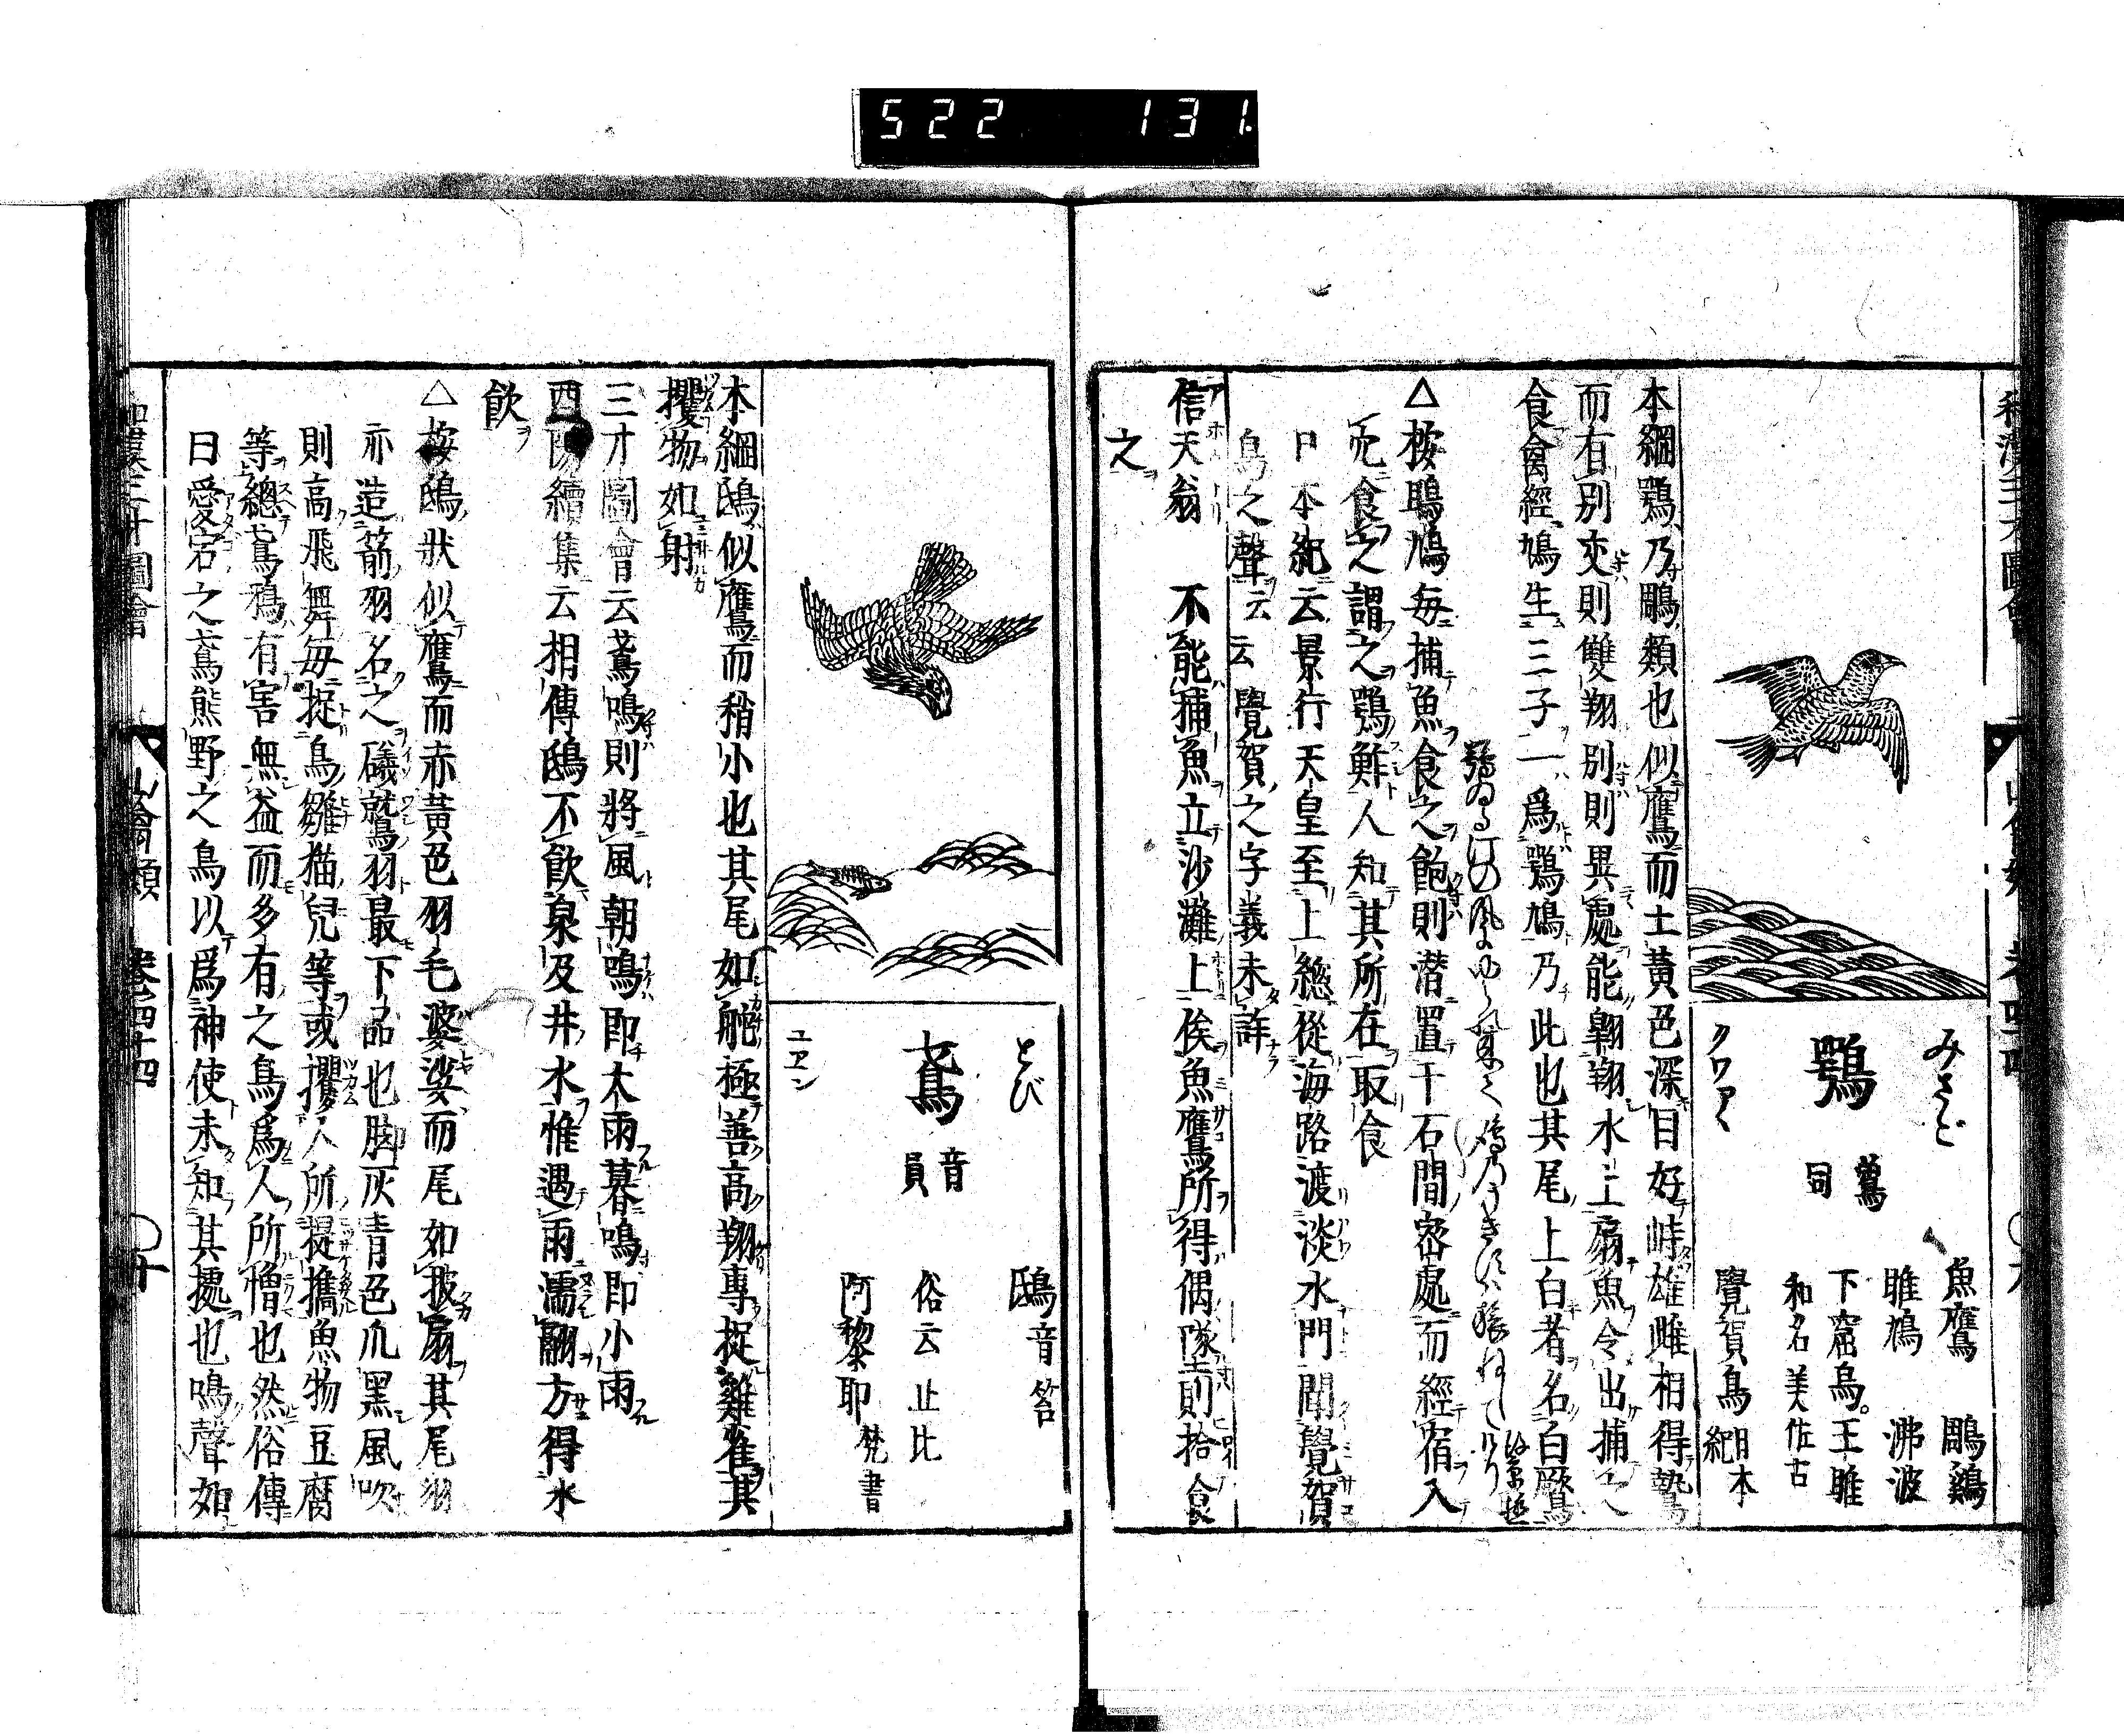 522 131.
みさご
鶚
鷲同
クワク
魚鷹 鵰鷄
雎鳩 沸波
下窟烏。王雎
和名美佐古
覺賀鳥 日本紀
本綱鶚乃鵰類也似鷹而土黃色深目好峙雄雌相得鷙
而有別交則雙翔別則異處能翺翔水上扇魚令出捕以
食禽經鳩生三子一爲鶚鳩乃此也其尾上白者名白鷢
△按鵰鳩毎捕魚食之飽則潜置于石間密處而經宿入
日本紀云景行天皇至上總從海路渡淡水門聞覺賀
鳥之聲云云覺賀之字義未詳
信天翁 不能捕魚立沙灘上俟魚鷹所得偶墜則拾食
之
とび
鳶
音員
ユエン
鴟音笞
俗云止比
阿黎耶 梵書
本綱鴟似鷹而稍小也其尾如舵極善高翔專捉雞雀其
攫物如射
三才圖會云鳶鳴則將風朝鳴即大雨暮鳴即小雨
西陽續集云相傳鴟不飲泉及井水惟遇雨濡翮方得水
飲
△按鴟狀似鷹而赤黃色羽毛婆娑而尾如披扇其尾羽
亦造箭羽名之礒鷲羽最下品也脚灰青色爪黑風吹
則高飛舞毎捉鳥雛猫兒等或攫人所提携魚物豆腐
等總鳶鴉有害無益而多有之鳥爲人所憎也然俗傳
曰愛宕之鳶熊野之烏以爲神使未知其據也鳴聲如
和漢三才圖會 山禽類 卷四十四 〇十